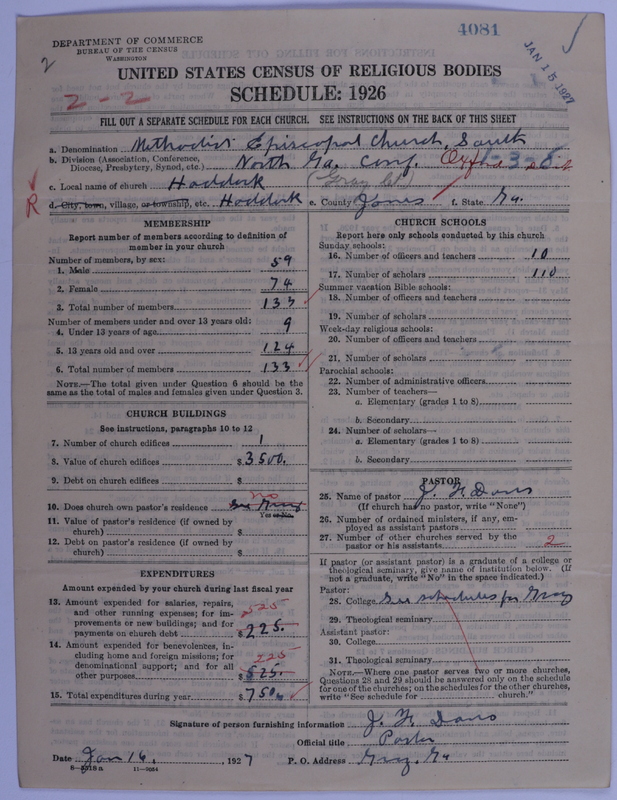 4081
JAN 15 1927
DEPARTMENT OF COMMERCE
BUREAU OF THE CENSUS
WASHINGTON
2
2-2
UNITED STATES CENSUS OF RELIGIOUS BODIES
SCHEDULE: 1926
FILL OUT A SEPARATE SCHEDULE FOR EACH CHURCH. SEE INSTRUCTIONS ON THE BACK OF THIS SHEET
a. Denomination Methodist Episcopal Church, South
b. Division (Association, Conference, Diocese, Presbytery, Synod, etc.) North Ga. Conf.
c. Local name of church Haddock
R
d. City, town, village, or township, etc. Haddock e. County Jones f. State Ga.
MEMBERSHIP
Report number of members according to definition of
member in your church
Number of members, by sex:
1. Male 59
2. Female 74
3. Total number of members 133
Number of members under and over 13 years old:
4. Under 13 years of age 9
5. 13 years old and over 124
6. Total number of members 133
NOTE.—The total given under Question 6 should be
same as the total of males and females given under Question 3.
CHURCH BUILDINGS
See instructions, paragraphs 10 to 12
7. Number of church edifices 1
8. Value of church edifices $3500.
9. Debt on church edifices $
no
10. Does church own pastor's residence See Gray
Yes or No.
11. Value of pastor's residence (if owned by
church) $
12. Debt on pastor's residence (if owned by
church) $
EXPENDITURES
Amount expended by your church during last fiscal year
13. Amount expended for salaries, repairs,
and other running expenses; for im-
provements or new buildings; and for
payments on church debt $225.
525
14. Amount expended for benevolences, in-
cluding home and foreign missions; for
denominational support; and for all
other purposes $525.
225
15. Total expenditures during year $750.
CHURCH SCHOOLS
Report here only schools conducted by this church
Sunday schools:
16. Number of officers and teachers 10
17. Number of scholars 110
Summer vacation Bible schools:
18. Number of officers and teachers
19. Number of scholars
Week-day religious schools:
20. Number of officers and teachers
21. Number of scholars
Parochial schools:
22. Number of administrative officers
23. Number of teachers—
a. Elementary (grades 1 to 8)
b. Secondary
24. Number of scholars—
a. Elementary (grades 1 to 8)
b. Secondary
PASTOR
25. Name of pastor J. F. Davis
(If church has no pastor, write "None")
26. Number of ordained ministers, if any, em-
ployed as assistant pastors
27. Number of other churches served by the
pastor or his assistants 2
If pastor (or assistant pastor) is a graduate of a college or
theological seminary, give name of institution below. (If
not a graduate, write "No" in the space indicated.)
Pastor:
28. College See schedules for Gray
29. Theological seminary
Assistant pastor:
30. College
31. Theological seminary
NOTE.—Where one pastor serves two or more churches,
Questions 28 and 29 should be answered only on the schedule
for one of the churches; on the schedules for the other churches,
write "See schedule for church."
Signature of person furnishing information J. F. Davis
Official title Pastor
Date Jan 14, 1927 P. O. Address Gray, Ga
8-5518 a 11-9084